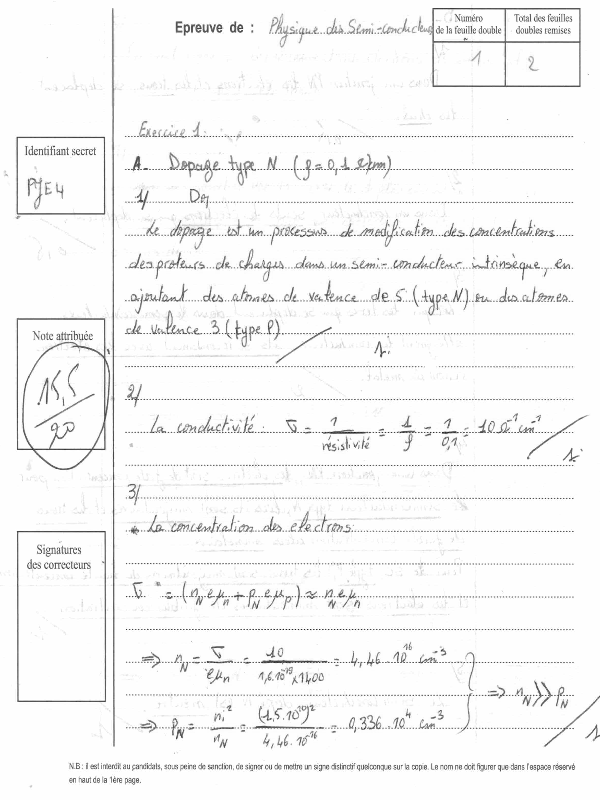 Epreuve de : Physique des Semi-conducteurs
Numéro de la feuille double
1
Total des feuilles doubles remises
2
Identifiant secret
PJE4
Note attribuée
15,5
20
Signatures des correcteurs
Exercice 1:
A. Dopage type N (ρ = 0,1 Ωcm)
1/
Le dopage est un processus de modification des concentrations
des proteurs de charges dans un semi-conducteur intrinsèque, en
ajoutant des atomes de valence de 5 (type N) ou des atomes
de valence 3 (type P).
1.
2/
La conductivité: σ = 1/résistivité = 1/ρ = 1/0,1 = 10 Ω⁻¹cm⁻¹
1.
3/
La concentration des électrons:
σ = (n_N e μ_n + p_N e μ_p) ≈ n_N e μ_n
⇒ n_N = σ/(e μ_n) = 10/(1,6.10⁻¹⁹ x 1400) = 4,46 . 10¹⁶ cm⁻³
⇒ n_N >> p_N
⇒ p_N = n_i²/n_N = (1,5.10¹⁰)²/(4,46.10⁻¹⁶) = 0,336.10⁴ cm⁻³
1
N.B : il est interdit au candidats, sous peine de sanction, de signer ou de mettre un signe distinctif quelconque sur la copie. Le nom ne doit figurer que dans l'espace réservé
en haut de la 1ère page.